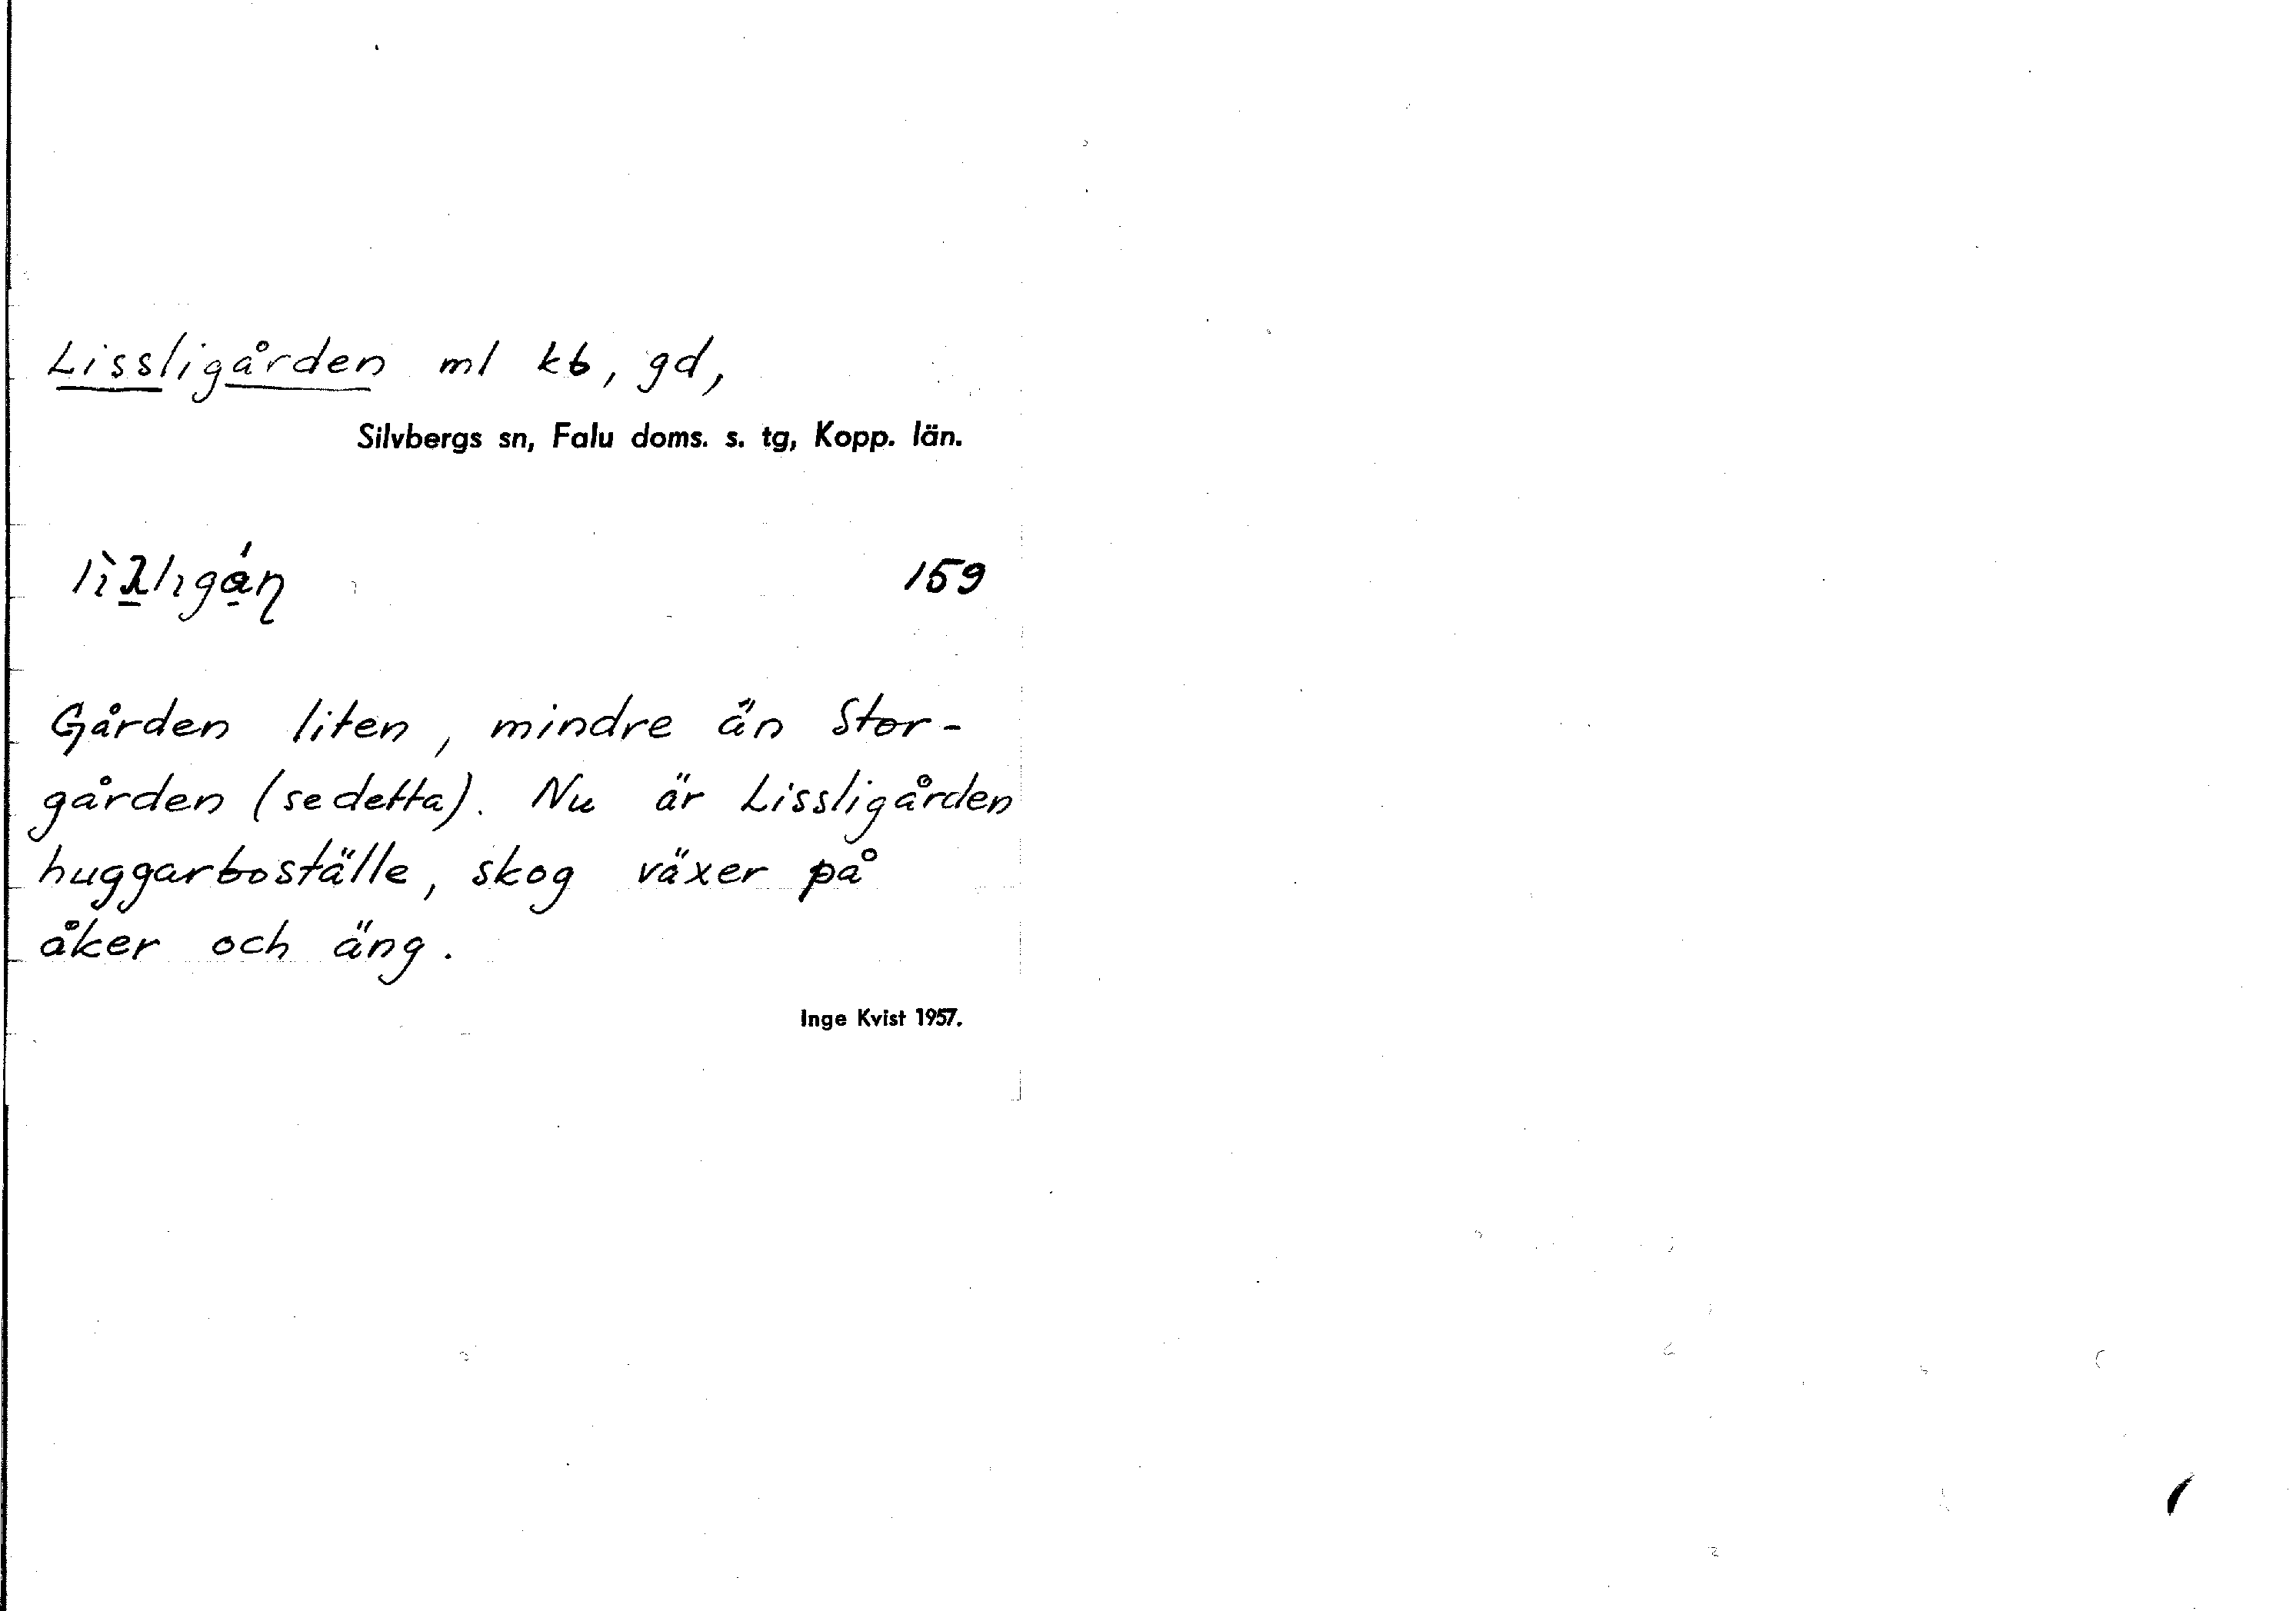 Lissligården ml kb, gd,
Silvbergs sn, Falu doms. s. tg, Kopp. län.
159
Gården liten, mindre än Stor-
gården (se detta). Nu är Lissligården
huggarboställe, skog växer på
åker och äng.
Inge Kvist 1957.